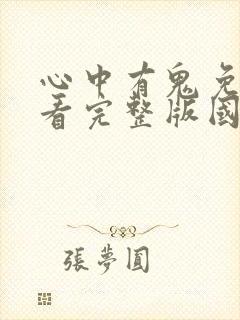 心中有鬼免
看完整版國
張夢圓